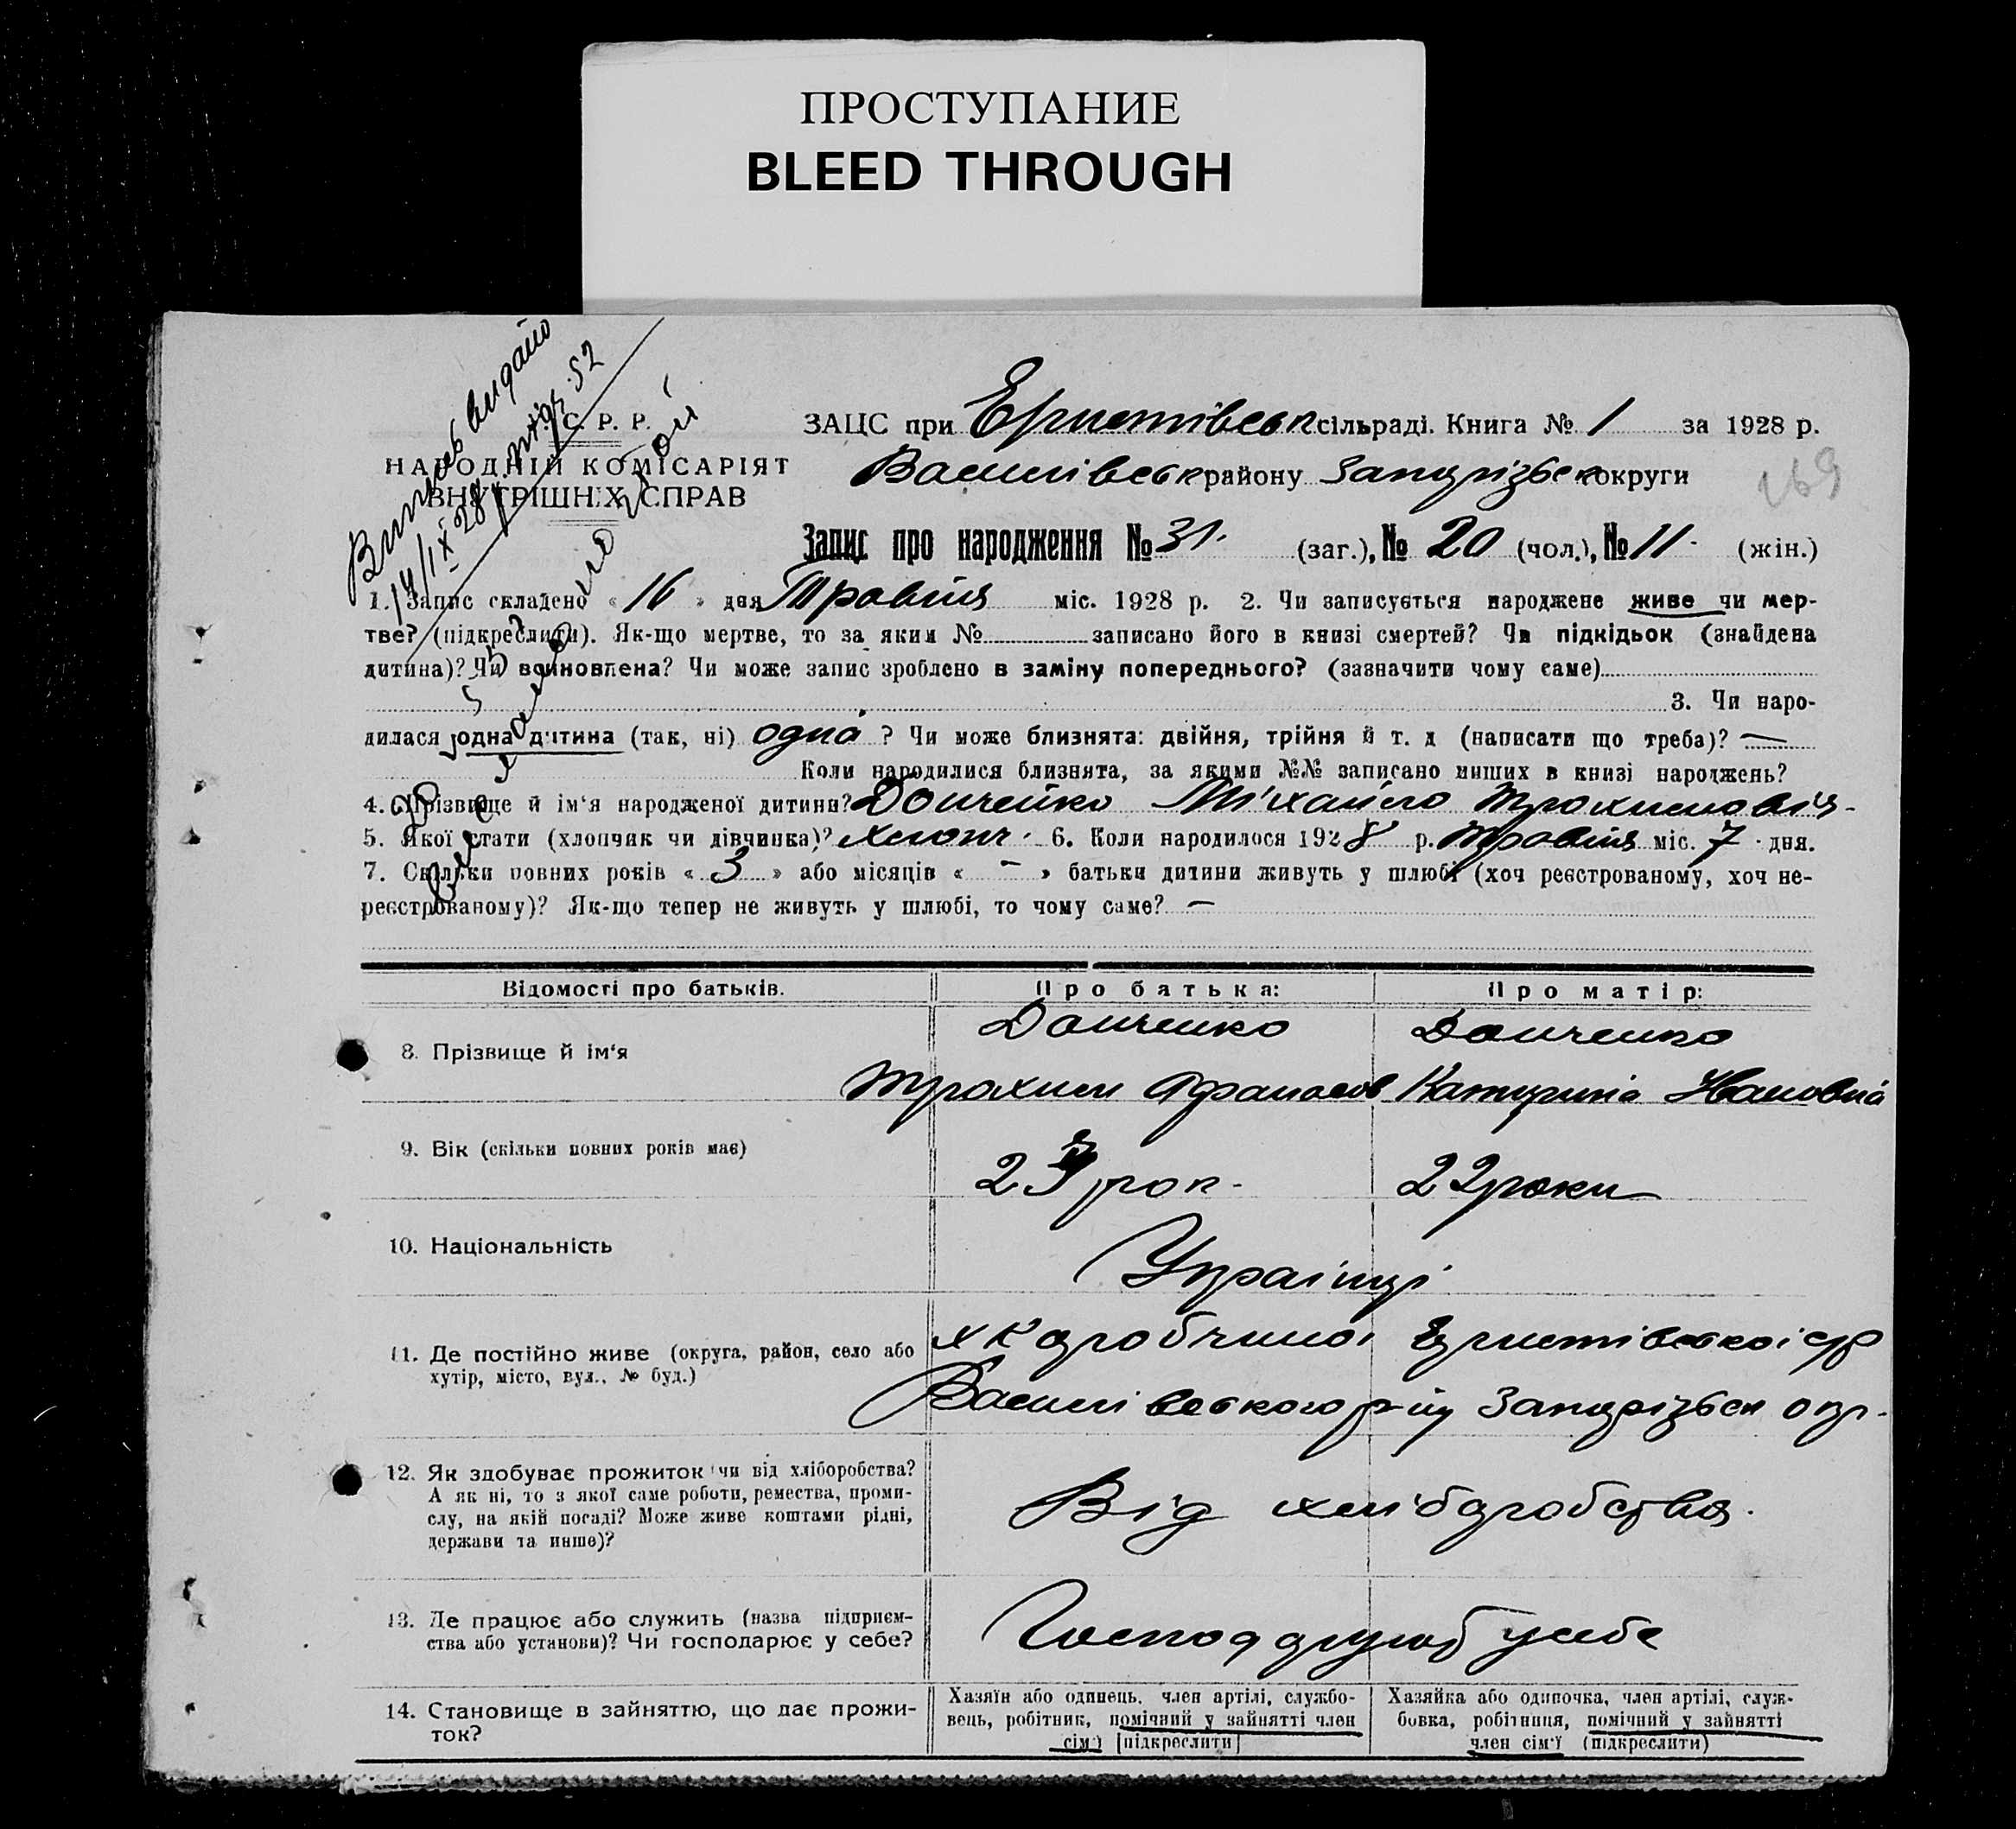 ПРОСТУПАНИЕ
BLEED THROUGH
Виписъ видано
14/IX 28 р. 52
С. Р. Р.
НАРОДНІЙ КОМІСАРІЯТ
ВНУТРІШНІХ СПРАВ
ЗАЦС при Еристівськ сільраді. Книга № 1 за 1928 р.
Василівськ району Запорізьк округи
169
Запис про народження № 31. (заг.), № 20 (чол.), № 11. (жін.)
1. Запис складено « 16 » дня Травня міс. 1928 р. 2. Чи записується народжене живе чи мер-
тве? (підкреслити). Як-що мертве, то за яким № записано його в книзі смертей? Чи підкідьок (знайдена
дитина)? Чи вриновлена? Чи може запис зроблено в заміну попереднього? (зазначити чому саме)
3. Чи наро-
дилася одна дитина (так, ні) одна ? Чи може близнята: двійня, трійня й т. д (написати що треба)? —
Коли народилися близнята, за якими №№ записано инших в книзі народжень?
4. Прізвище й ім'я народженої дитини? Донченко Міхайло Трохимовіч-
5. Якої стати (хлопчик чи дівчинка)? хлопч. 6. Коли народилося 1928 р. Травня міс. 7 дня.
7. Скільки повних років « 3 » або місяців « – » батьки дитини живуть у шлюбі (хоч реєстрованому, хоч не-
реєстрованому)? Як-що тепер не живуть у шлюбі, то чому саме? —
Відомості про батьків. Про батька: Про матір:
8. Прізвище й ім'я Донченко Донченко
Трохим Афанасов Катерина Івановна
9. Вік (скільки повних років має) 2 рок- 22 роки
10. Національність Українці
11. Де постійно живе (округа, район, село або хутір, місто, вул., № буд.) Еристівської с/р
Василівського р-ну Запорізьк окр.
12. Як здобуває прожиток чи від хліборобства?
А як ні, то з якої саме роботи, ремества, проми-
слу, на якій посаді? Може живе коштами рідні,
держави та инше)?
Від хліборобства.
13. Де працює або служить (назва підприєм-
ства або установи)? Чи господарює у себе?
у себе
14. Становище в зайняттю, що дає прожи-
ток?
Хазяїн або одинець, член артілі, службо-
вець, робітник, помічний у зайнятті член
сім'ї (підкреслити)
Хазяйка або одиночка, член артілі, служ-
бовка, робітниця, помічний у зайнятті
член сім'ї (підкреслити)